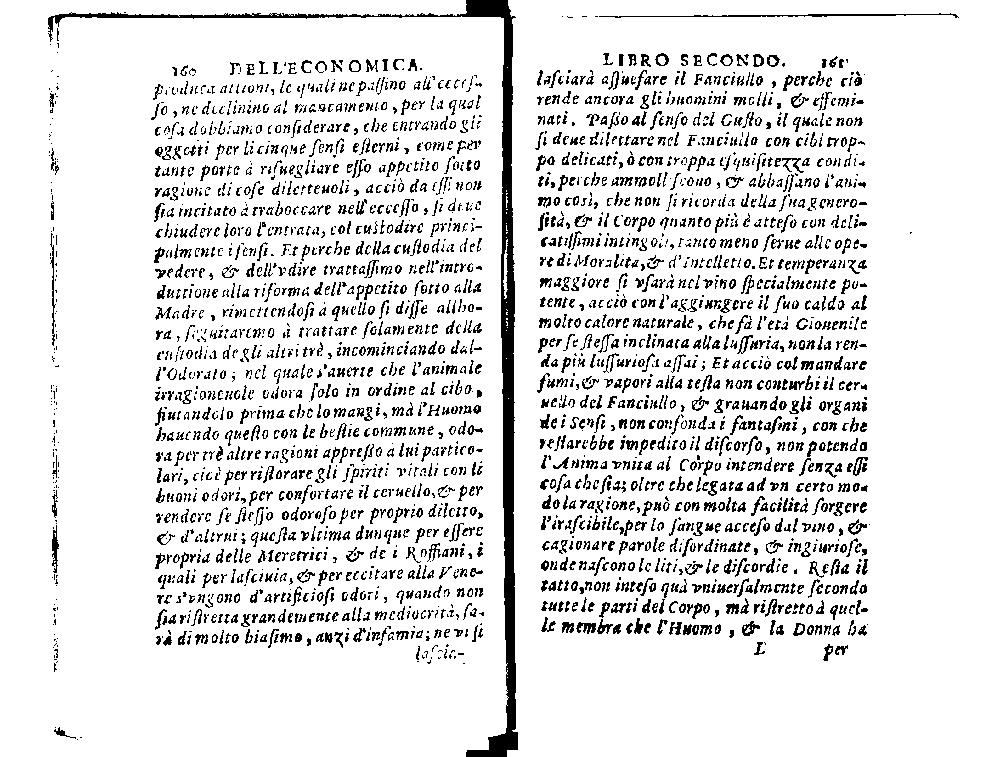 160 DELL'ECONOMICA.
produca attioni, le quali ne passino all'eccess-
so, ne declinino al mancamento, per la qual
cosa dobbiamo considerare, che entrando gli
oggetti per li cinque sensi esterni, come per
tante porte à risuegliare esso appetito sotto
ragione di cose diletteuoli, acciò da essi non
sia incitato à traboccare nell'eccesso, si deue
chiudere loro l'entrata, col custodire princi-
palmente i sensi. Et perche della custodia del
vedere, & dell'vdire trattassimo nell'intro-
duttione alla riforma dell'appetito sotto alla
Madre, rimettendosi à quello si disse allho-
ra, seguitaremo à trattare solamente della
custodia degli altri trè, incominciando dal-
l'Odorato; nel quale s'auerte che l'animale
irragioneuole odora solo in ordine al cibo,
fiutandolo prima che lo mangi, mà l'Huomo
hauendo questo con le bestie commune, odo-
ra per trè altre ragioni appresso à lui partico-
lari, cioè per ristorare gli spiriti vitali con li
buoni odori, per confortare il ceruello, & per
rendere se stesso odoroso per proprio diletto,
& d'altrui; questa vltima dunque per essere
propria delle Meretrici, & de i Roffiani, i
quali per lasciuia, & per eccitare alla Vene-
re s'vngono d'artificiosi odori, quando non
sia ristretta grandemente alla mediocrità, sa-
rà di molto biasimo, anzi d'infamia; ne vi si
lascia-
LIBRO SECONDO. 161
lasciarà assuefare il Fanciullo, perche ciò
rende ancora gli huomini molli, & effemi-
nati. Passo al senso del Gusto, il quale non
si deue dilettare nel Fanciullo con cibi trop-
po delicati, ò con troppa esquisitezza condi-
ti, perche ammolliscono, & abbassano l'ani-
mo così, che non si ricorda della sua genero-
sità, & il Corpo quanto più è atteso con deli-
catissimi intingoli, tanto meno serue alle ope-
re di Moralità, & d'Intelletto. Et temperanza
maggiore si vsarà nel vino specialmente po-
tente, acciò con l'aggiungere il suo caldo al
molto calore naturale, che fà l'età Giouenile
per se stessa inclinata alla lussuria, non la ren-
da più lussuriosa assai; Et acciò col mandare
fumi, & vapori alla testa non conturbi il cer-
uello del Fanciullo, & grauando gli organi
de i Sensi, non confonda i fantasmi, con che
restarebbe impedito il discorso, non potendo
l'Anima vnita al Corpo intendere senza essi
cosa che sia; oltre che legata ad vn certo mo-
do la ragione, può con molta facilità sorgere
l'irascibile, per lo sangue acceso dal vino, &
cagionare parole disordinate, & ingiuriose,
onde nascono le liti, & le discordie. Resta il
tatto, non inteso quà vniuersalmente secondo
tutte le parti del Corpo, mà ristretto à quel-
le membra che l'Huomo, & la Donna ha
L per